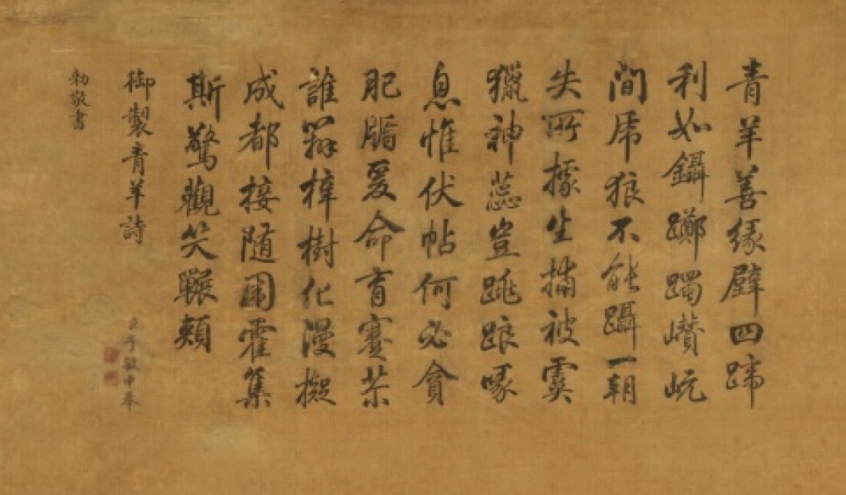 青羊善緣壁四蹄
利如鑷躑躅巑岏
間虎狼不能躡一朝
失所據生擒被虞
獵神蕊豈跳踉喙
息惟伏帖何必貪
肥腯爰命育
誰辨梓樹化漫擬
成都接隨圍霍集
斯驚觀笑頰
御製青羊詩
臣于敏中奉
勅敬書